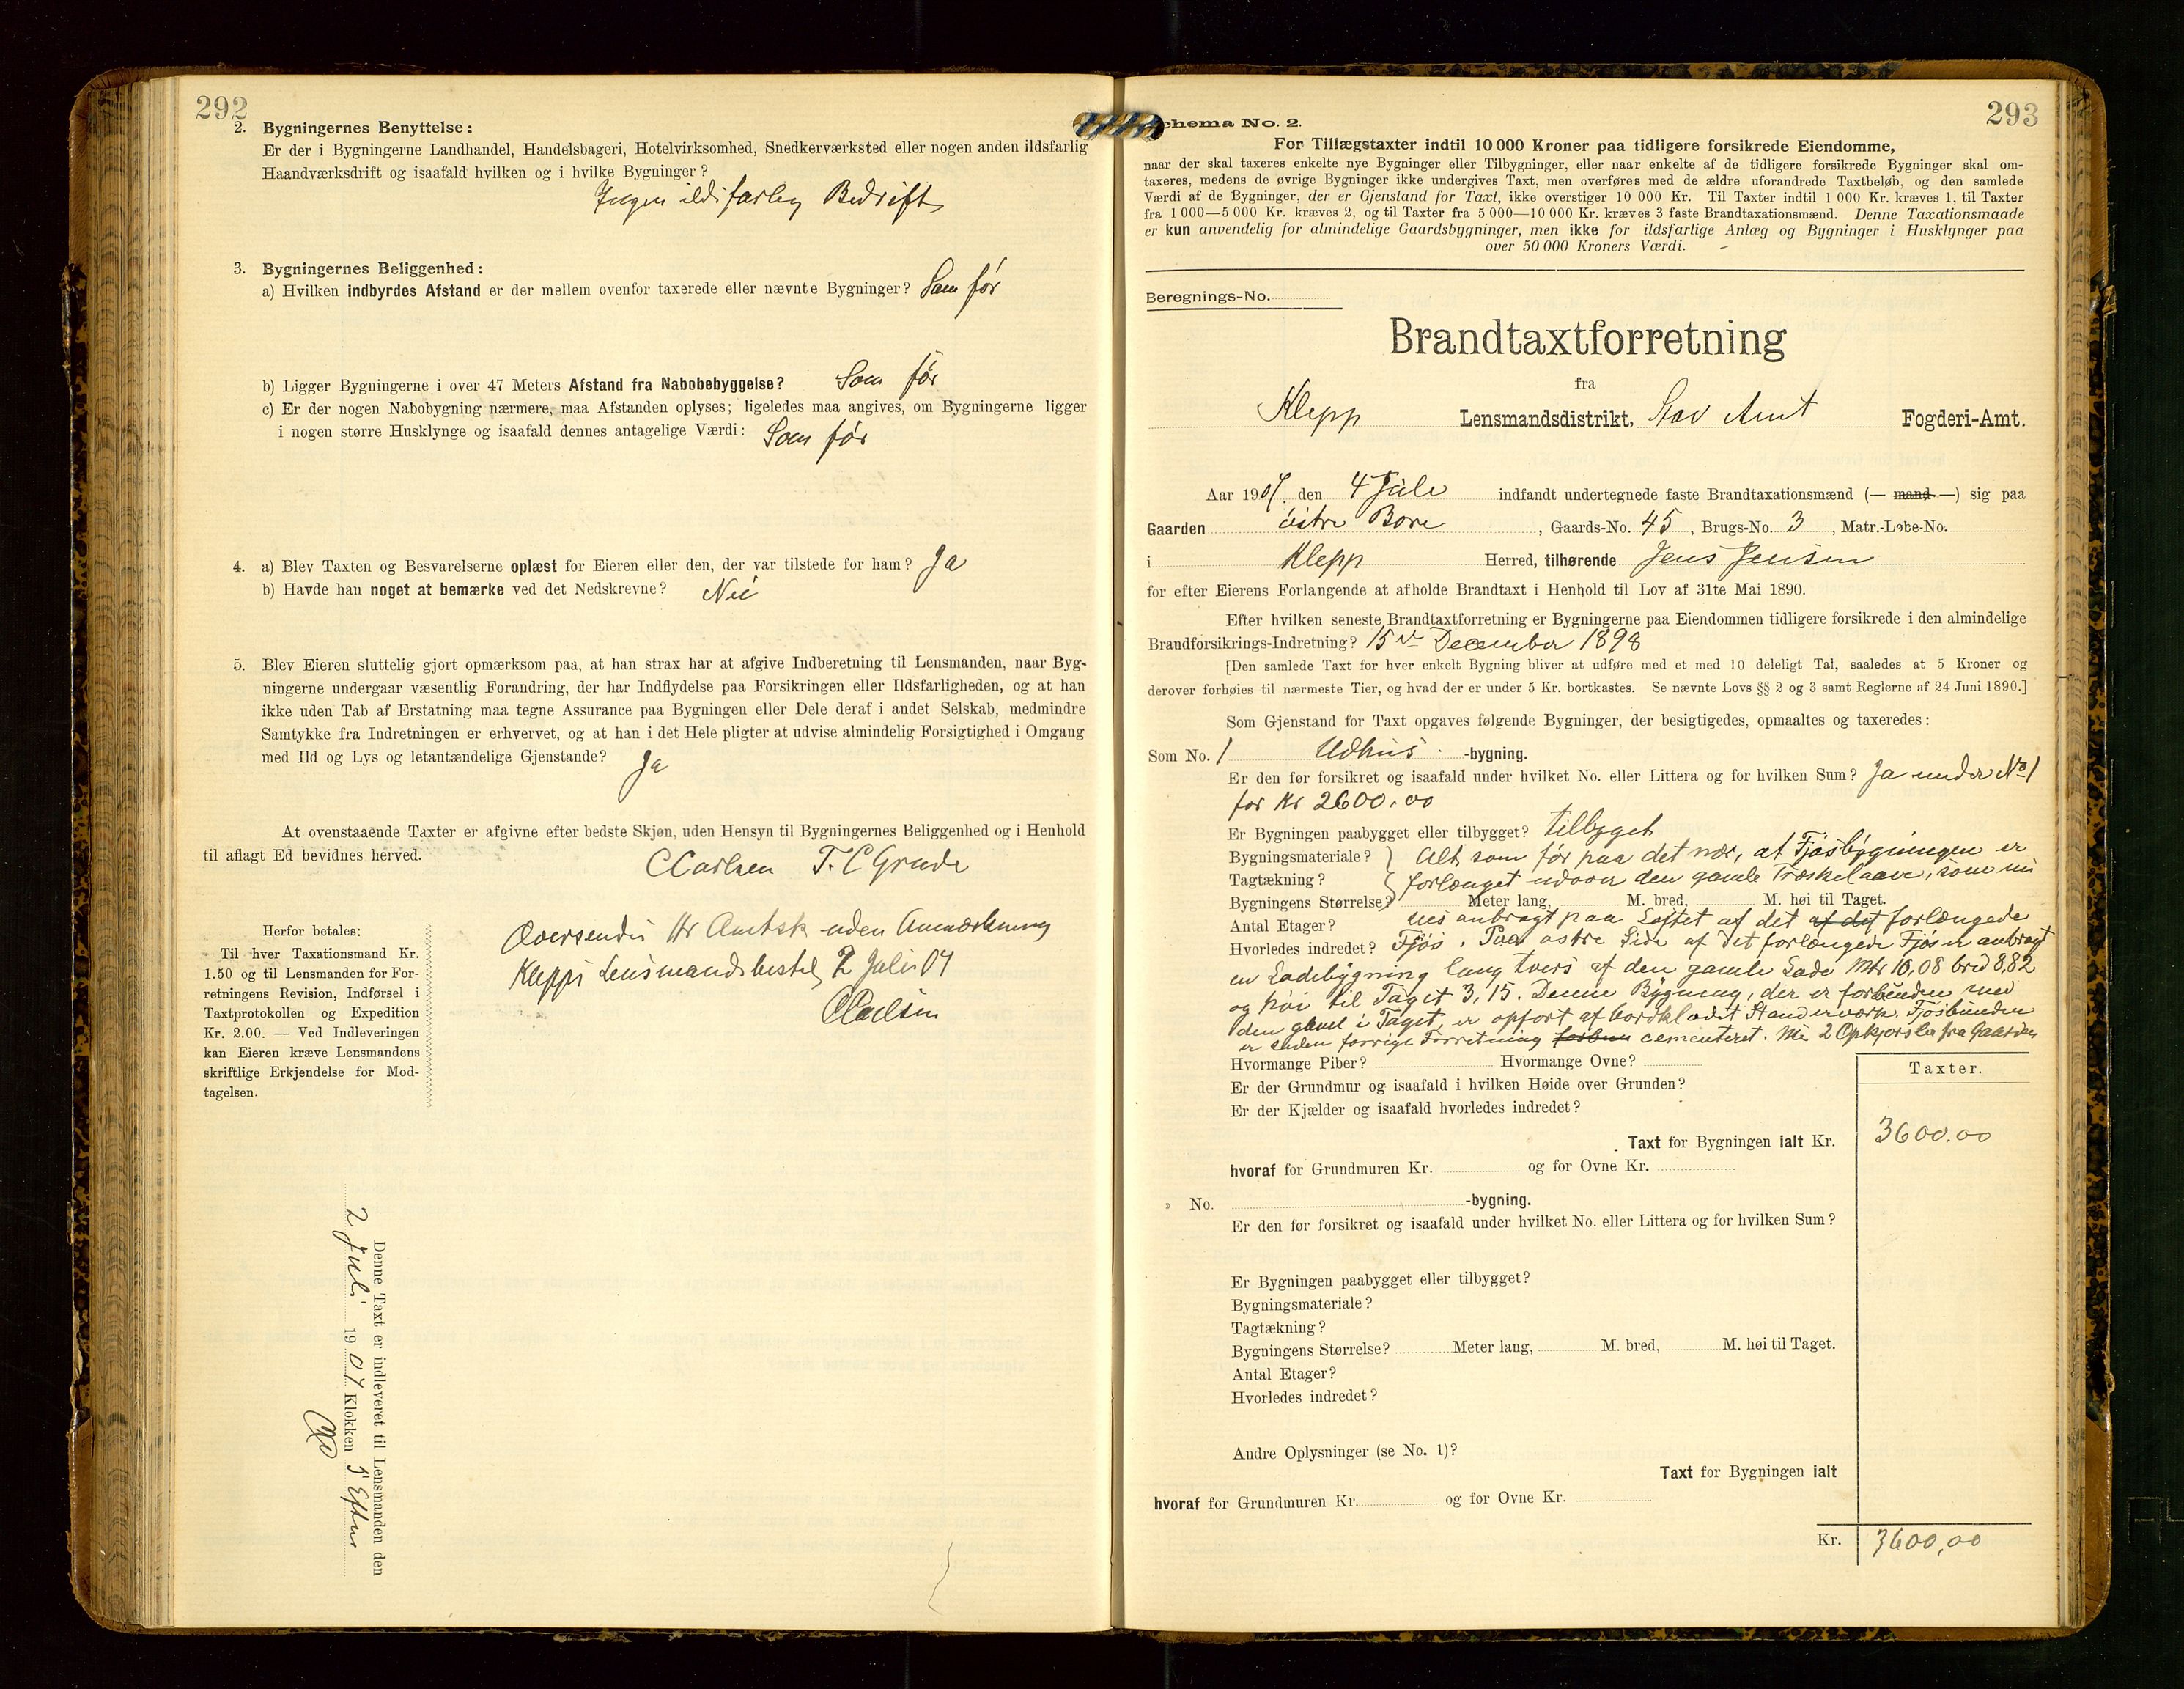 292
2. Bygningernes Benyttelse:
Er der i Bygningerne Landhandel, Handelsbageri, Hotelvirksomhed, Snedkerværksted eller nogen anden ildsfarlig
Haandværksdrift og isaafald hvilken og i hvilke Bygninger?
Ingen ildsfarleg Bedrift
3. Bygningernes Beliggenhed:
a) Hvilken indbyrdes Afstand er der mellem ovenfor taxerede eller nævnte Bygninger? Som før
b) Ligger Bygningerne i over 47 Meters Afstand fra Nabobebyggelse? Som før
c) Er der nogen Nabobygning nærmere, maa Afstanden oplyses; ligeledes maa angives, om Bygningerne ligger
i nogen større Husklynge og isaafald dennes antagelige Værdi: Som før
4. a) Blev Taxten og Besvarelserne oplæst for Eieren eller den, der var tilstede for ham? Ja
b) Havde han noget at bemærke ved det Nedskrevne? Nei
5. Blev Eieren sluttelig gjort opmærksom paa, at han strax har at afgive Indberetning til Lensmanden, naar Byg-
ningerne undergaar væsentlig Forandring, der har Indflydelse paa Forsikringen eller Ildsfarligheden, og at han
ikke uden Tab af Erstatning maa tegne Assurance paa Bygningen eller Dele deraf i andet Selskab, medmindre
Samtykke fra Indretningen er erhvervet, og at han i det Hele pligter at udvise almindelig Forsigtighed i Omgang
med Ild og Lys og letantændelige Gjenstande? Ja
At ovenstaaende Taxter er afgivne efter bedste Skjøn, uden Hensyn til Bygningernes Beliggenhed og i Henhold
til aflagt Ed bevidnes herved.
CCarlsen T. C Grude
Oversendes Hr Amtsk uden Anmærkning
Klepps Lensmandsbestil 2 Juli 04
CCarlsen
Herfor betales:
Til hver Taxationsmand Kr.
1.50 og til Lensmanden for For-
retningens Revision, Indførsel i
Taxtprotokollen og Expedition
Kr. 2.00. — Ved Indleveringen
kan Eieren kræve Lensmandens
skriftlige Erkjendelse for Mod-
tagelsen.
Denne Taxt er indleveret til Lensmanden den
2 Juli 1904 Klokken 5 Efter
293
Schema No. 2.
For Tillægstaxter indtil 10 000 Kroner paa tidligere forsikrede Eiendomme,
naar der skal taxeres enkelte nye Bygninger eller Tilbygninger, eller naar enkelte af de tidligere forsikrede Bygninger skal om-
taxeres, medens de øvrige Bygninger ikke undergives Taxt, men overføres med de ældre uforandrede Taxtbeløb, og den samlede
Værdi af de Bygninger, der er Gjenstand for Taxt, ikke overstiger 10 000 Kr. Til Taxter indtil 1 000 Kr. kræves 1, til Taxter
fra 1 000—5 000 Kr. kræves 2, og til Taxter fra 5 000—10 000 Kr. kræves 3 faste Brandtaxationsmænd. Denne Taxationsmaade
er kun anvendelig for almindelige Gaardsbygninger, men ikke for ildsfarlige Anlæg og Bygninger i Husklynger paa
over 50 000 Kroners Værdi.
Beregnings-No.
Brandtaxtforretning
fra
Klepp Lensmandsdistrikt, Stav Amt Fogderi-Amt.
Aar 1904 den 4 Juli indfandt undertegnede faste Brandtaxationsmænd (— mand —) sig paa
Gaarden østre Bore, Gaards-No. 45, Brugs-No. 3, Matr.-Løbe-No.
i Klepp Herred, tilhørende Jens Jensen
for efter Eierens Forlangende at afholde Brandtaxt i Henhold til Lov af 31te Mai 1890.
Efter hvilken seneste Brandtaxtforretning er Bygningerne paa Eiendommen tidligere forsikrede i den almindelige
Brandforsikrings-Indretning? 15de December 1898
[Den samlede Taxt for hver enkelt Bygning bliver at udføre med et med 10 deleligt Tal, saaledes at 5 Kroner og
derover forhøies til nærmeste Tier, og hvad der er under 5 Kr. bortkastes. Se nævnte Lovs §§ 2 og 3 samt Reglerne af 24 Juni 1890.]
Som Gjenstand for Taxt opgaves følgende Bygninger, der besigtigedes, opmaaltes og taxeredes:
Som No. 1 Udhus -bygning.
Er den før forsikret og isaafald under hvilket No. eller Littera og for hvilken Sum? Ja under No 1
for Kr 2600.00
Er Bygningen paabygget eller tilbygget? tilbyget
Bygningsmateriale? Alt som før paa det nær, at Fjøsbygningen er
Tagtækning? forlænget udover den gamle Træskelaave, som nu
Bygningens Størrelse? Meter lang, M. bred, M. høi til Taget.
Antal Etager? anbragt paa Loftet af det af det forlængede
Hvorledes indredet? Fjøs. Paa østre Side af det forlængede Fjøs er anbragt
en Ladebygning lang tvers af den gamle Lade Mtr 10,08 bred 8,82
og høi til Taget 3,15. Denne Bygning, der er forbunden med
den gamel i Taget, er opført af bordklædt Standerværk. Fjøsbunden
er siden forrige Forretning cementeret. 2 Opkjørsler fra Gaarden
Hvormange Piber? Hvormange Ovne?
Er der Grundmur og isaafald i hvilken Høide over Grunden?
Er der Kjælder og isaafald hvorledes indredet?
Taxter.
Taxt for Bygningen ialt Kr. 3600.00
hvoraf for Grundmuren Kr. og for Ovne Kr.
» No. -bygning.
Er den før forsikret og isaafald under hvilket No. eller Littera og for hvilken Sum?
Er Bygningen paabygget eller tilbygget?
Bygningsmateriale?
Tagtækning?
Bygningens Størrelse? Meter lang, M. bred, M. høi til Taget.
Antal Etager?
Hvorledes indredet?
Andre Oplysninger (se No. 1)?
Taxt for Bygningen ialt
hvoraf for Grundmuren Kr. og for Ovne Kr.
Kr. 3600,00